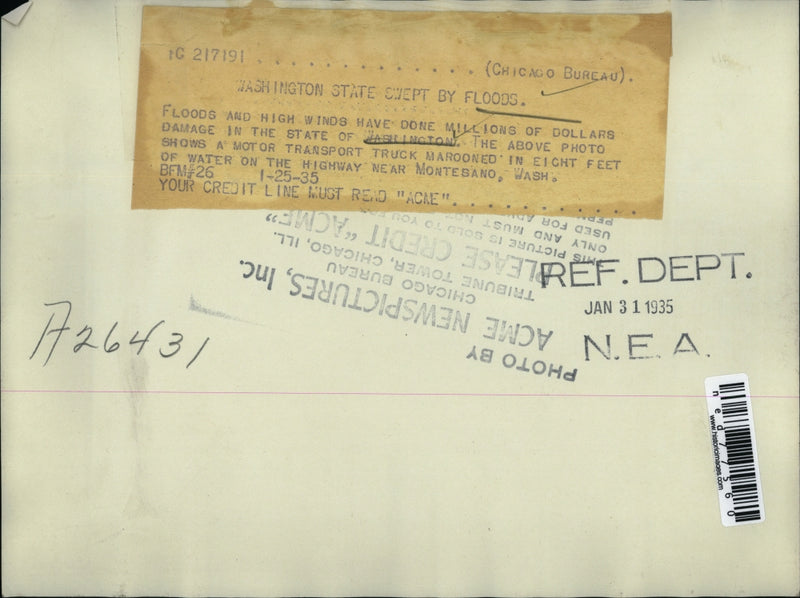 1G 217191 . . . . . . . . . . . . . (CHICAGO BUREAU).
WASHINGTON STATE SWEPT BY FLOODS.
FLOODS AND HIGH WINDS HAVE DONE MILLIONS OF DOLLARS
DAMAGE IN THE STATE OF WASHINGTON. THE ABOVE PHOTO
SHOWS A MOTOR TRANSPORT TRUCK MAROONED IN EIGHT FEET
OF WATER ON THE HIGHWAY NEAR MONTESANO, WASH.
BFM#26 1-25-35
YOUR CREDIT LINE MUST READ "ACME". . . . . . . . . . .
PHOTO BY
ACME NEWSPICTURES, Inc.
CHICAGO BUREAU
TRIBUNE TOWER, CHICAGO, ILL.
PLEASE CREDIT "ACME"
THIS PICTURE IS SOLD TO YOU FOR
ONLY AND MUST NOT
USED FOR
REF. DEPT.
JAN 31 1935
N.E.A.
A26431
ned77560
www.historicimages.com